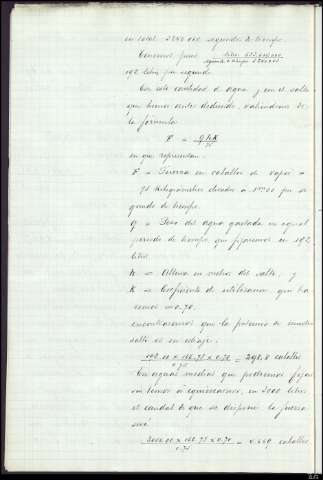 en total 3240.000 segundos de tiempo.
Tenemos pues litros 622.080.000
segundos de tiempo 3240.000
192 litros por segundo.
Con esta cantidad de agua y en el salto
que hemos antes deducido, valiéndonos de
la fórmula
F = QhK
75
en que representan:
F = Fuerza en caballos de vapor =
75 kilográmetros elevados a 1m00 por se
gundo de tiempo.
Q = Peso del agua gastada en igual
periodo de tiempo, que fijaremos en 192
litros.
h = Altura en metros del salto, y
K = Coeficiente de utilización que ha
remos = 0.70.
encontraremos que la potencia de nuestro
salto es en estiaje:
192.00 x 166.75 x 0.70 = 298.8 caballos
0.75
En aguas medias que podremos fijar
sin temor a equivocarnos, en 3000 litros
el caudal de que se dispone la fuerza
será
3000.00 x 166.75 x 0.70 = 4.669 caballos
0.75